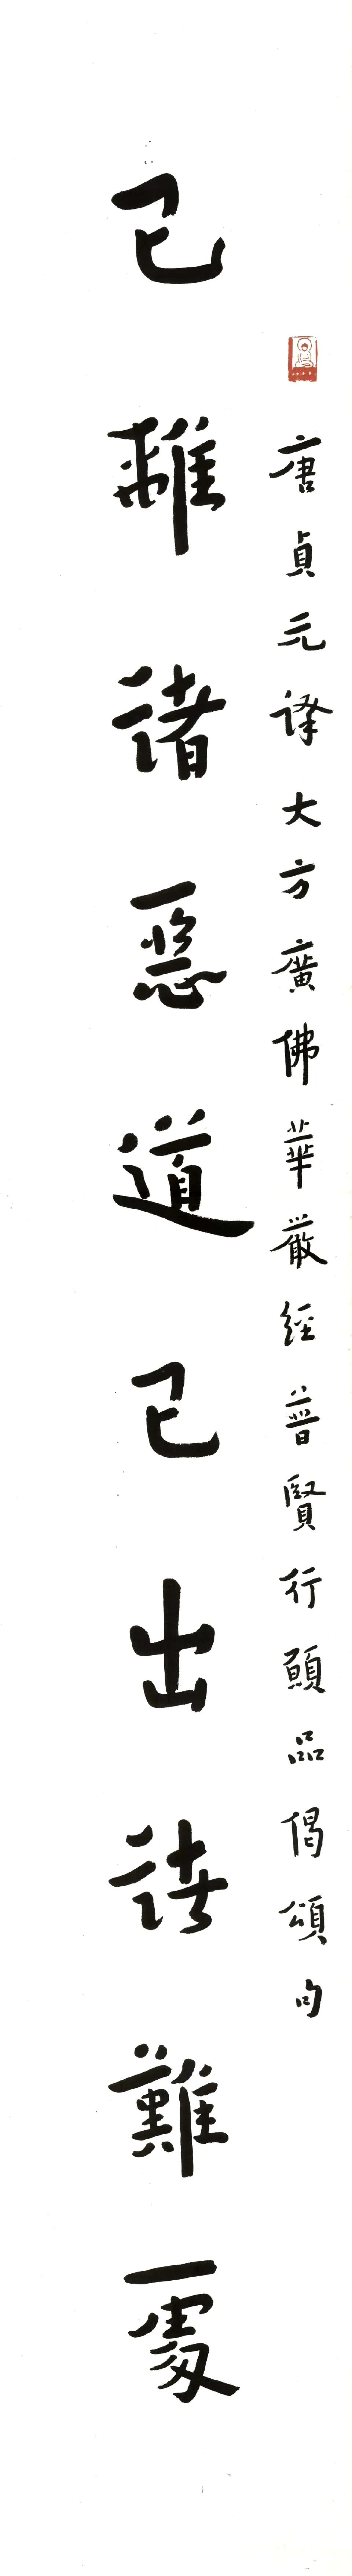 唐貞元譯大方廣佛華嚴經普賢行願品偈頌句
已離諸惡道已出諸難處